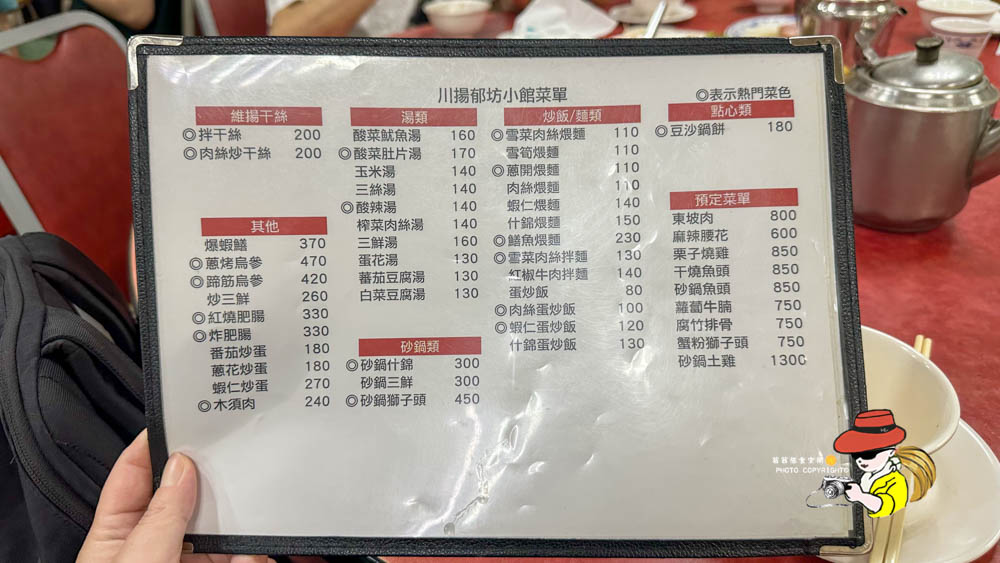 川揚郁坊小館菜單
◎表示熱門菜色
維揚干絲
◎拌干絲 200
◎肉絲炒干絲 200
其他
爆蝦鱔 370
◎蔥烤烏參 470
◎蹄筋烏參 420
炒三鮮 260
◎紅燒肥腸 330
◎炸肥腸 330
番茄炒蛋 180
蔥花炒蛋 180
蝦仁炒蛋 270
◎木須肉 240
湯類
酸菜魷魚湯 160
◎酸菜肚片湯 170
玉米湯 140
三絲湯 140
◎酸辣湯 140
榨菜肉絲湯 140
三鮮湯 160
蛋花湯 130
蕃茄豆腐湯 130
白菜豆腐湯 130
砂鍋類
◎砂鍋什錦 300
砂鍋三鮮 300
◎砂鍋獅子頭 450
炒飯/麵類
◎雪菜肉絲煨麵 110
雪筍煨麵 110
◎蔥開煨麵 110
肉絲煨麵 110
蝦仁煨麵 140
什錦煨麵 150
◎鱔魚煨麵 230
◎雪菜肉絲拌麵 130
紅椒牛肉拌麵 140
蛋炒飯 80
◎肉絲蛋炒飯 100
◎蝦仁蛋炒飯 120
什錦蛋炒飯 130
點心類
◎豆沙鍋餅 180
預定菜單
東坡肉 800
麻辣腰花 600
栗子燒雞 850
干燒魚頭 850
砂鍋魚頭 850
蘿蔔牛腩 750
腐竹排骨 750
蟹粉獅子頭 750
砂鍋土雞 1300
PHOTO COPYRIGHTS